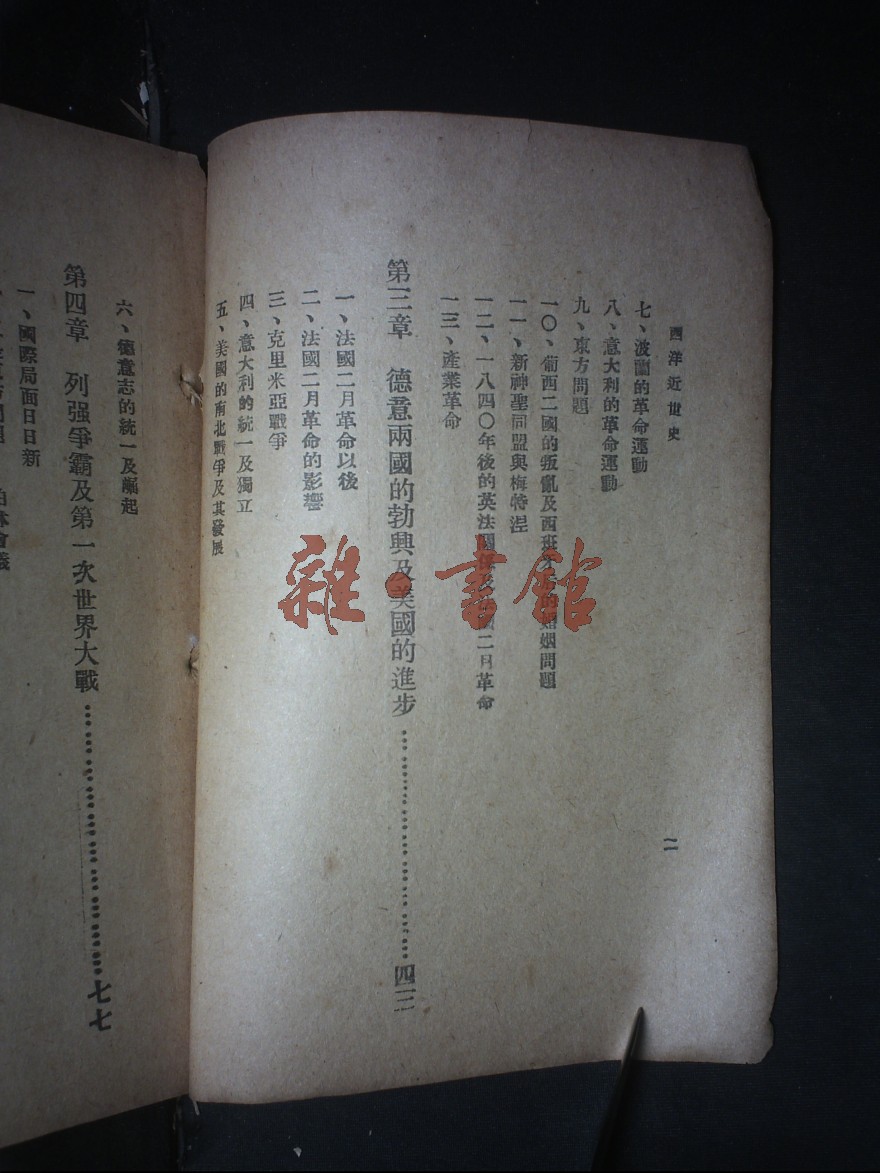 西洋近世史
二
七、波蘭的革命運動
八、意大利的革命運動
九、東方問題
一〇、葡西二國的叛亂及西班牙的婚姻問題
一一、新神聖同盟與梅特涅
一二、一八四〇年後的英法關係及法國二月革命
一三、產業革命
第三章　德意兩國的勃興及美國的進步……四三
一、法國二月革命以後
二、法國二月革命的影響
三、克里米亞戰爭
四、意大利的統一及獨立
五、美國的南北戰爭及其發展
六、德意志的統一及崛起
第四章　列强爭霸及第一次世界大戰……七七
一、國際局面日日新
雜·書館